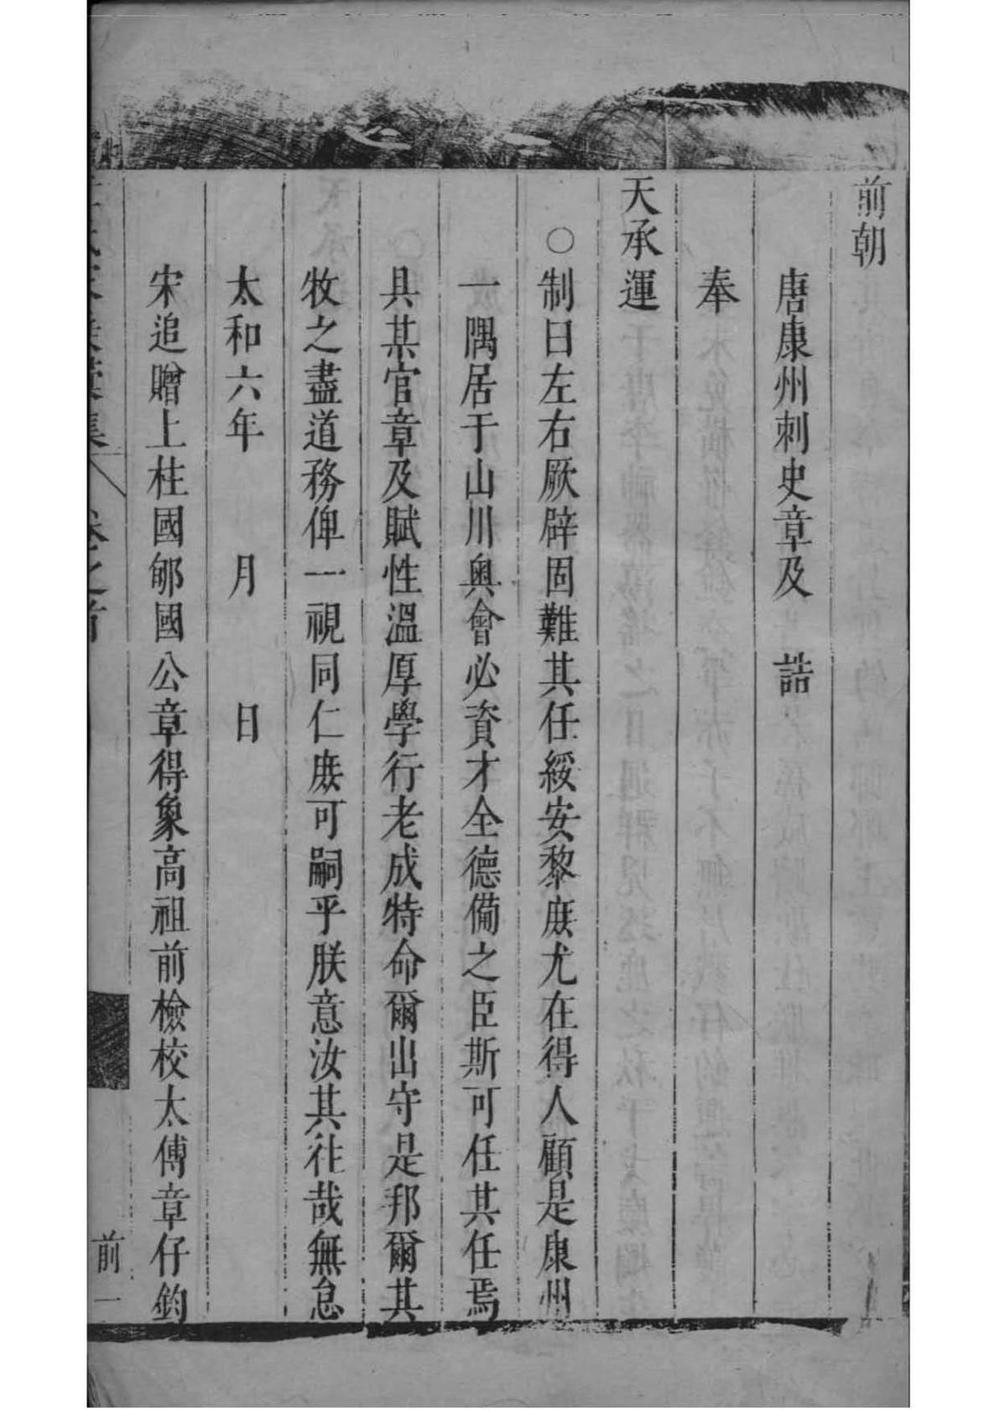 前朝
唐康州刺史章及　誥
奉
天承運
○制曰左右厥辟固難其任綏安黎庻尤在得人顧是康州
一隅居于山川奥會必資才全德僃之臣斯可任其任焉
具某官章及賦性溫厚學行老成特命爾出守是邦爾其
牧之盡道務俾一視同仁庻可嗣乎朕意汝其往哉無怠
太和六年　月　日
宋追贈上柱國郇國公章得象高祖前檢校太傅章仔鈞
卷之首
前一